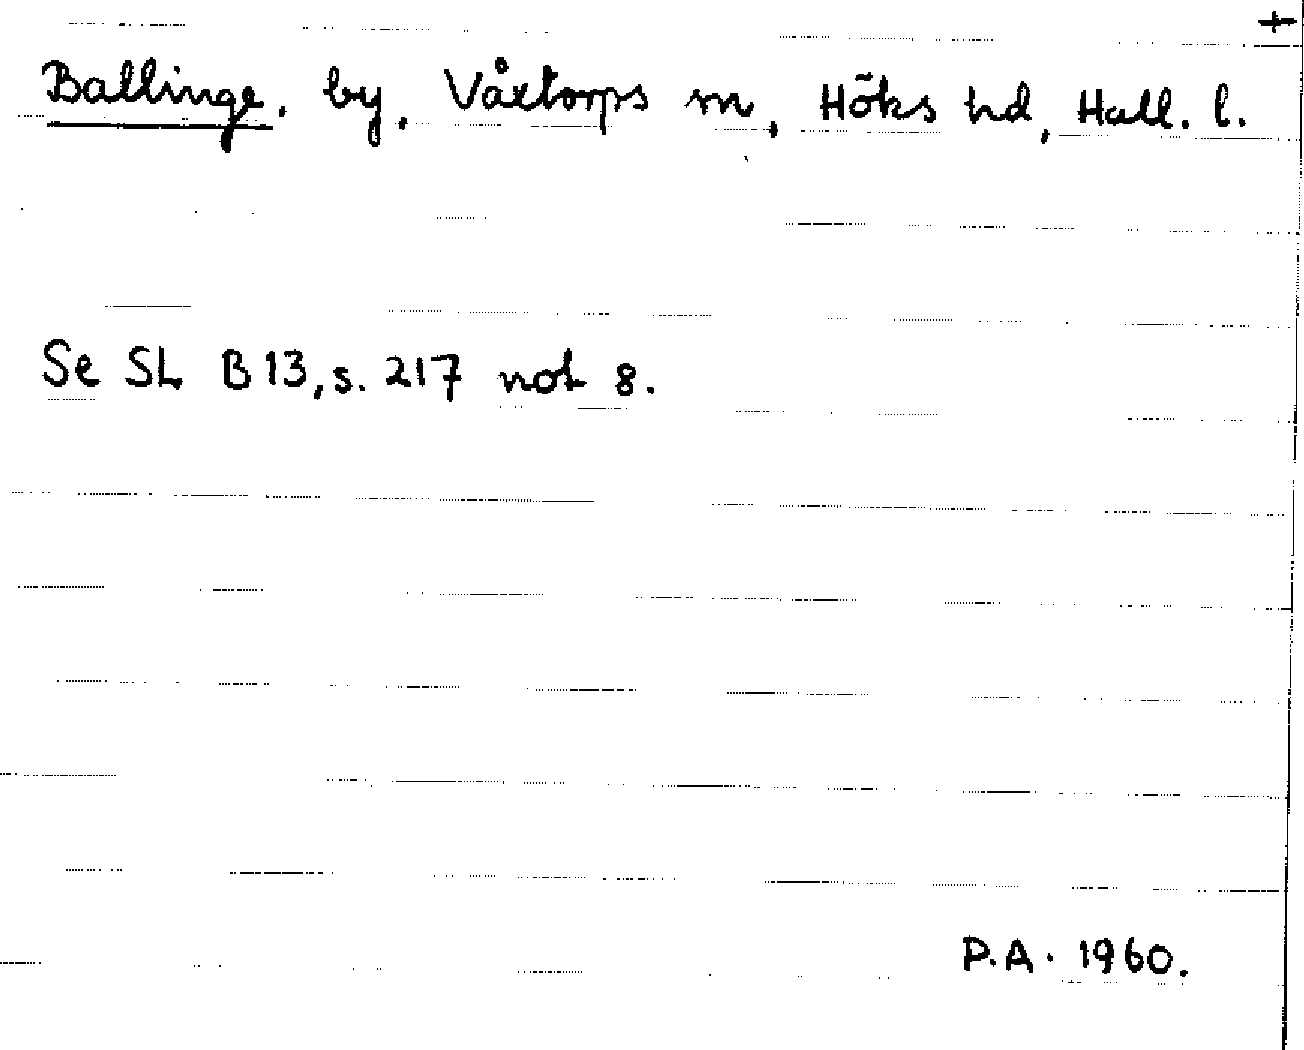 +
Ballinge, by, Våxtorps sn, Höks hd, Hall. l.
Se SL B 13, s. 217 not 8.
P.A. 1960.